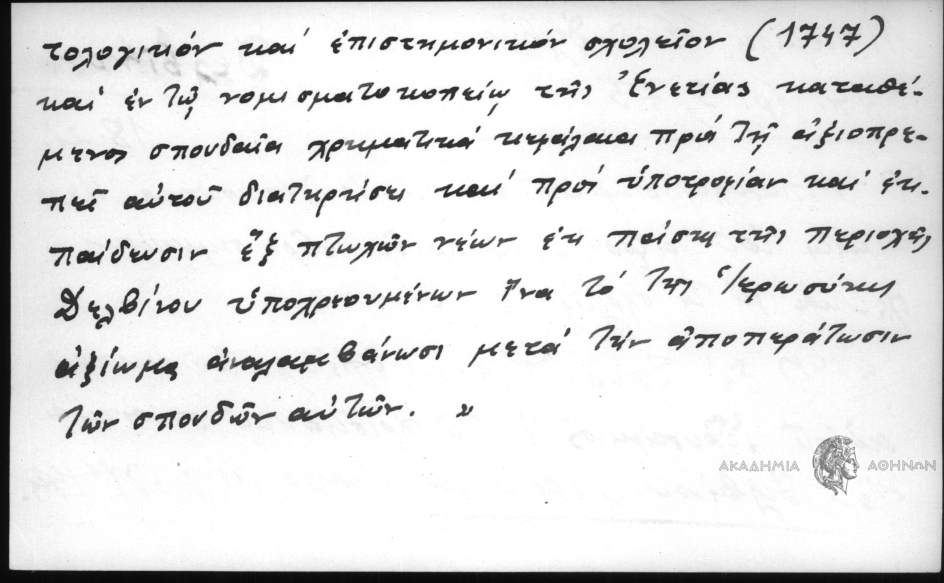 τολογικόν καί ἐπιστημονικόν σχολεῖον (1747)
καί ἐν τῷ νομισματοκοπείῳ τῆς Ἑνετίας καταθέ-
μενος σπουδαῖα χρηματικά κεφάλαια πρός τῇ ἀξιοπρε-
πεῖ αὐτοῦ διατηρήσει καί πρός ὑποτροφίαν καί ἐκ-
παίδευσιν ἕξ πτωχῶν νέων ἐκ πάσης τῆς περιοχῆς
Δελβίνου ὑποχρεουμένων ἵνα τό τῆς ἱερωσύνης
ἀξίωμα ἀναλαμβάνωσι μετά τήν ἀποπεράτωσιν
τῶν σπουδῶν αὐτῶν. »
ΑΚΑΔΗΜΙΑ ΑΘΗΝΩΝ